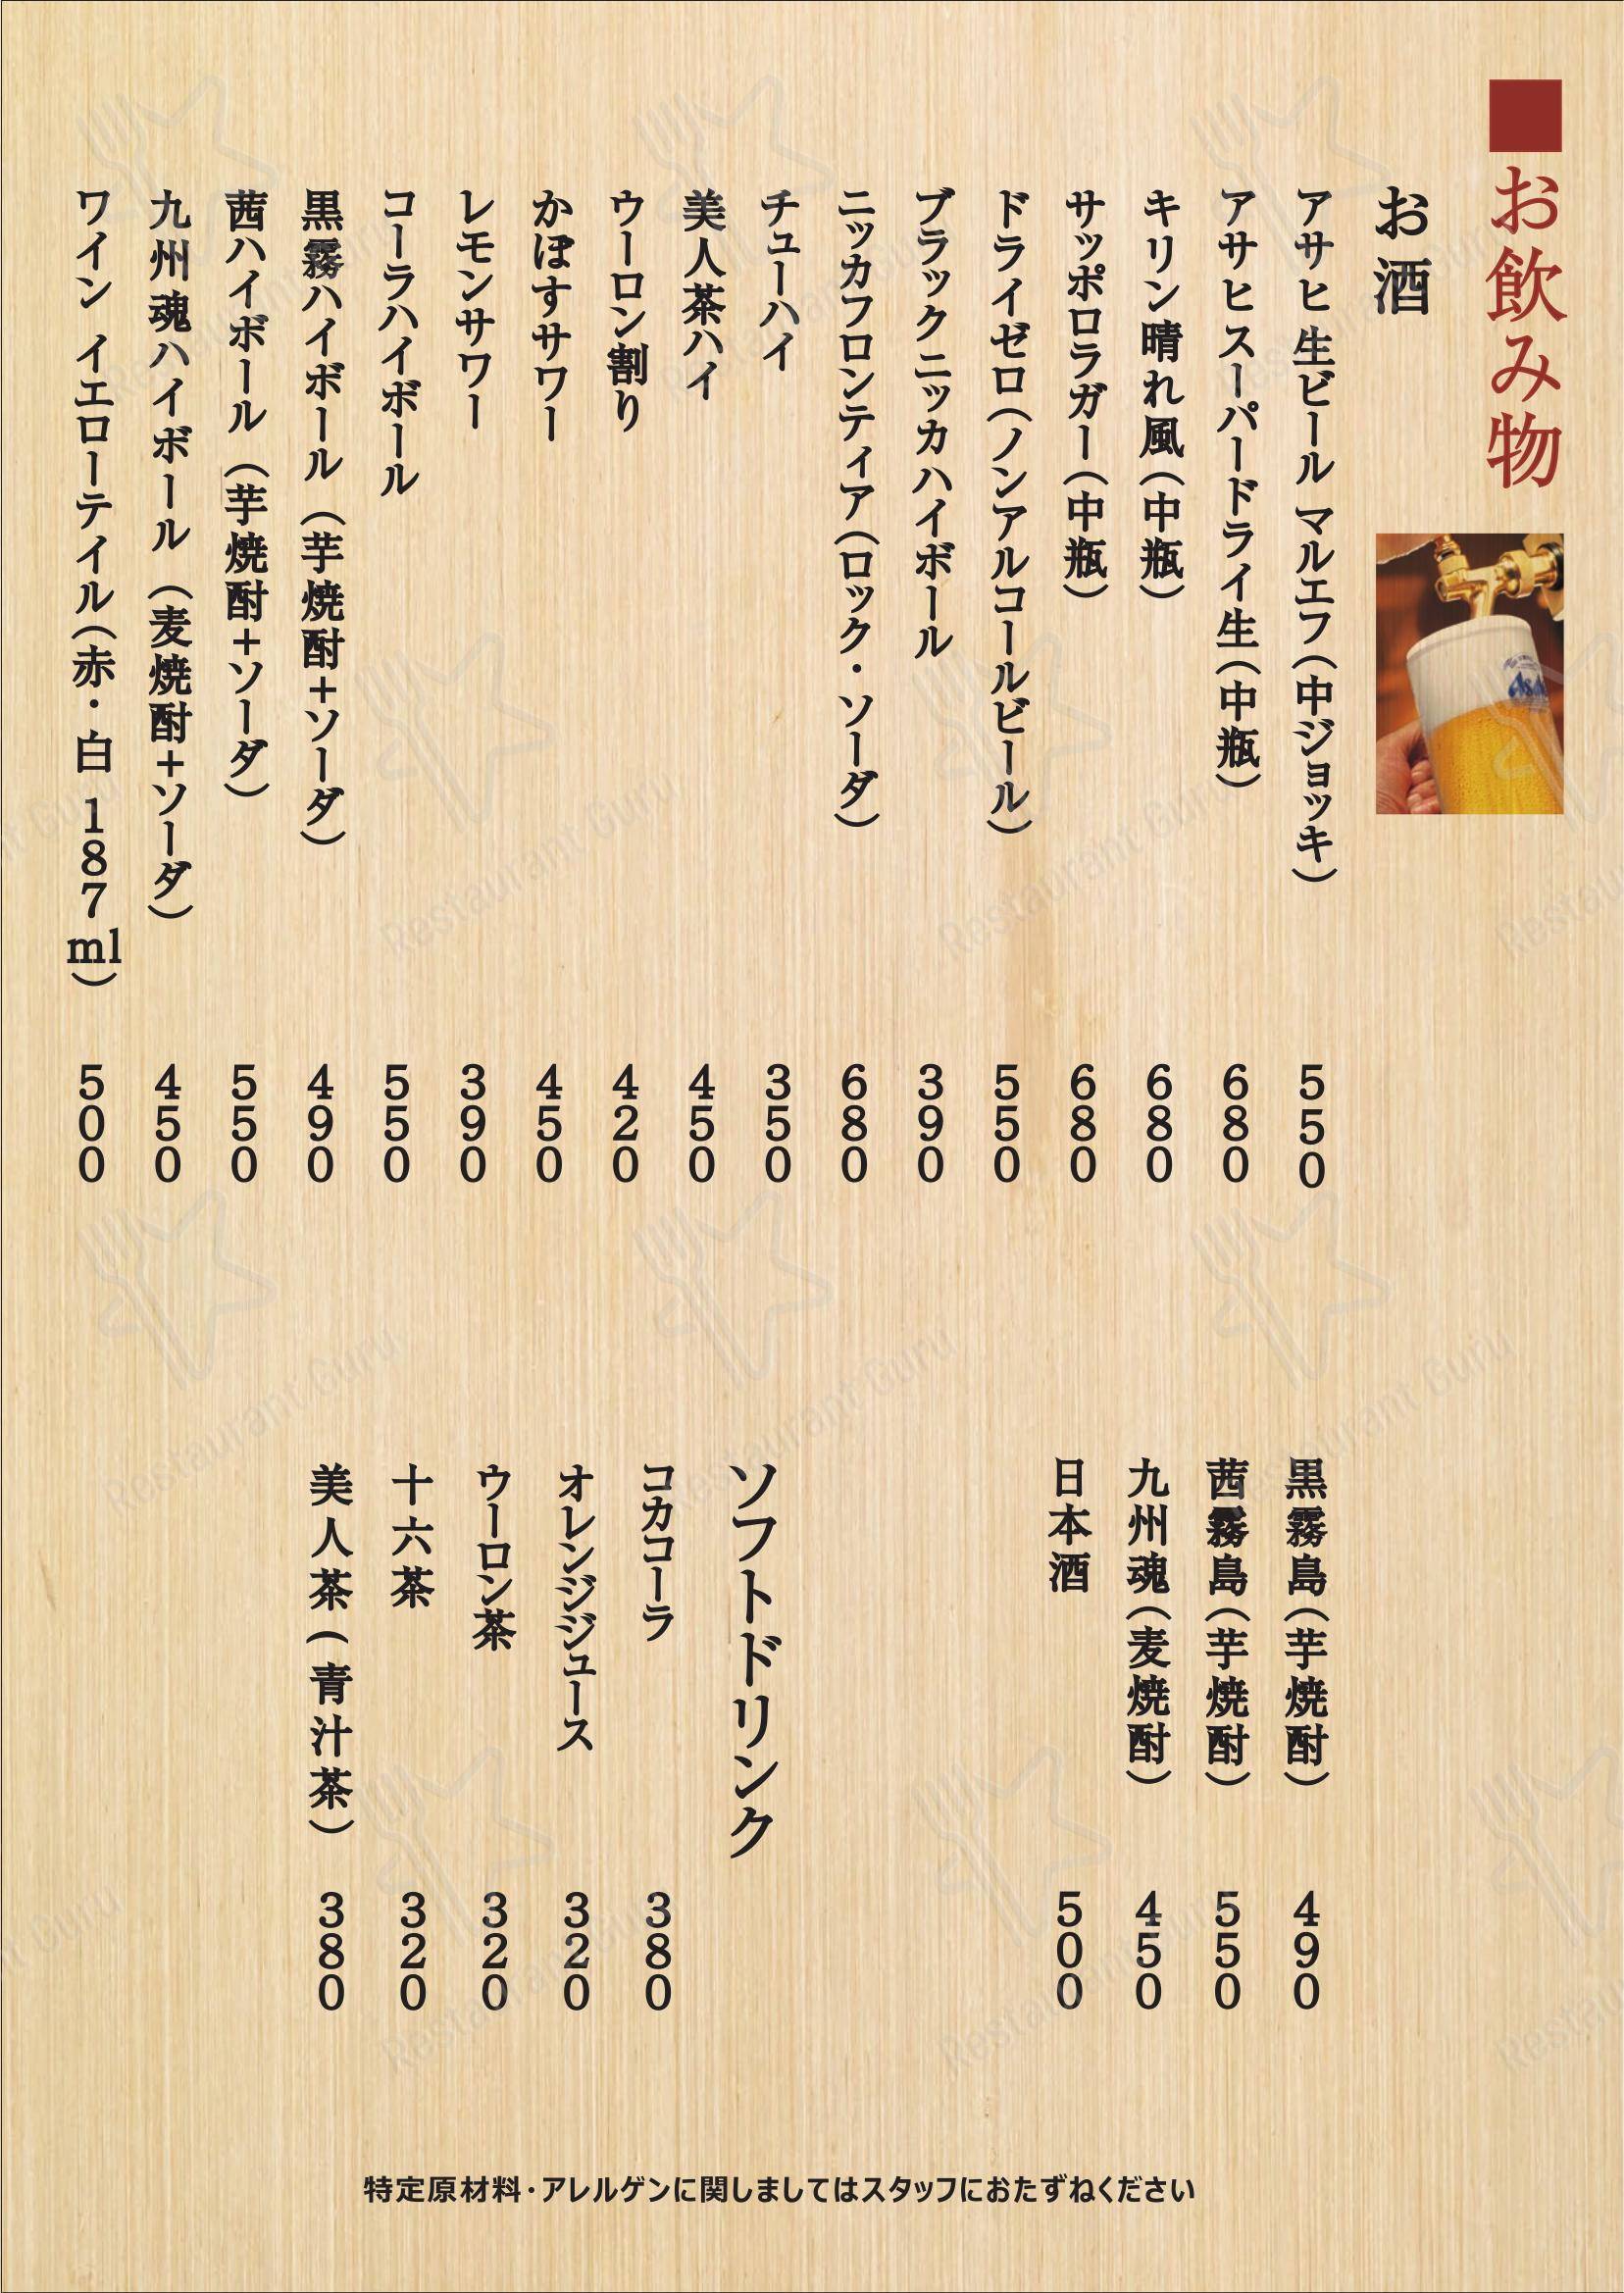 ■お飲み物
お酒
アサヒ 生ビール マルエフ(中ジョッキ) 550
アサヒ スーパードライ生(中瓶) 680
キリン晴れ風(中瓶) 680
サッポロラガー(中瓶) 680
ドライゼロ(ノンアルコールビール) 550
ブラックニッカ ハイボール 390
ニッカフロンティア(ロック・ソーダ) 680
チューハイ 350
美人茶ハイ 450
ウーロン割り 420
かぼすサワー 450
レモンサワー 390
コーラハイボール 550
黒霧ハイボール (芋焼酎+ソーダ) 490
茜ハイボール (芋焼酎+ソーダ) 550
九州魂ハイボール (麦焼酎+ソーダ) 450
ワイン イエローテイル(赤・白 187ml) 500
黒霧島(芋焼酎) 490
茜霧島(芋焼酎) 550
九州魂(麦焼酎) 450
日本酒 500
ソフトドリンク
コカコーラ 380
オレンジジュース 320
ウーロン茶 320
十六茶 320
美人茶(青汁茶) 380
特定原材料・アレルゲンに関しましてはスタッフにおたずねください
Restaurant Guru